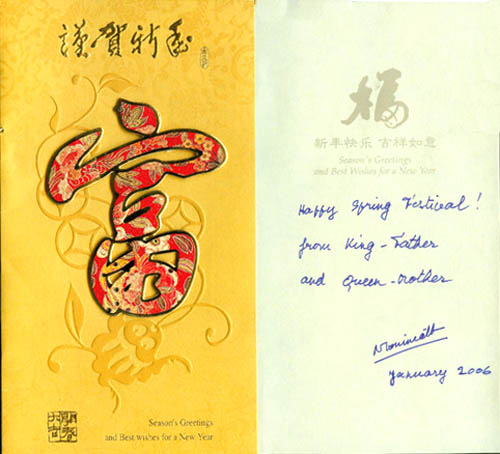 謹賀新年
富
開春大吉
Season's Greetings
and Best wishes for a New Year
福
新年快乐 吉祥如意
Season's Greetings
and Best Wishes for a New Year
Happy Spring Festival!
from King-Father
and Queen-mother
January 2006